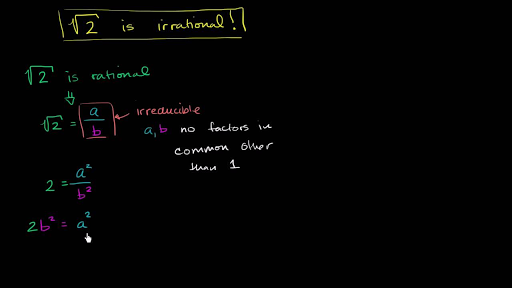 √2 is irrational!
√2 is rational
√2 = a/b irreducible
a, b no factors in
common other
than 1
2 = a²/b²
2b² = a²